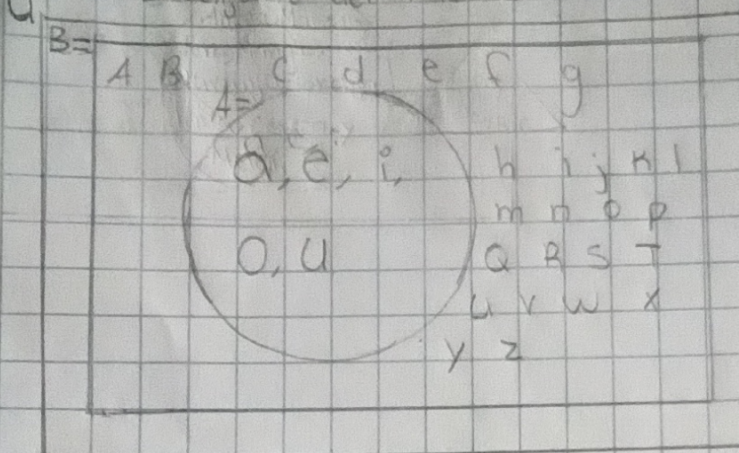 B=
A B c d e f g
A=
a, e, i,
h i j k l
m n o p
o, u
Q R S T
u v w x
y z